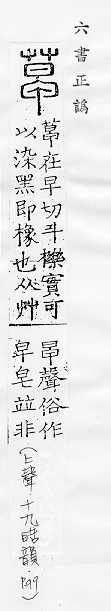 六書正譌
草在早切斗櫟實可
以染黑即橡也从艸
早聲俗作
皁皂並非
(上聲十九晧韻.P49)